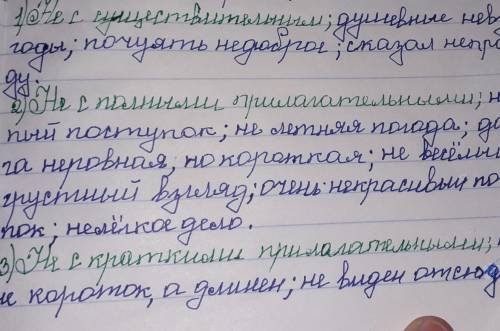 1) Не с существительным; душевные невз
годы; почуять недоброе; сказал непра
ду.
2) Не с полными прилагательными; н
пый поступок; не летняя погода; до
га неровная, но короткая; не весёлый
грустный взгляд; очень некрасивый по
пок; нелёгкое дело.
3) Не с краткими прилагательными;
не короток, а длинен; не виден отсюд